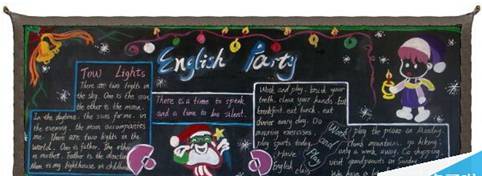 English Party
Tow Lights
There are two lights in
the sky. One is the sun,
the other is the moon.
In the daytime. the sun for me. in
the evening. the moon accompanies
me. There are two lights in the
world. One is father. The other
is mother. Father is the
There is a time to speak
and a time to be silent.
Work and play. brush your
teeth. clean your hands. Eat
breakfast eat lunch. eat
dinner every day. Do
morning exercises
play sports today.
Have
English class
Work
and
Play
play the piano on Monday.
climb mountains. go hiking.
only a week away. Go shopping.
visit grandparents on Sunday